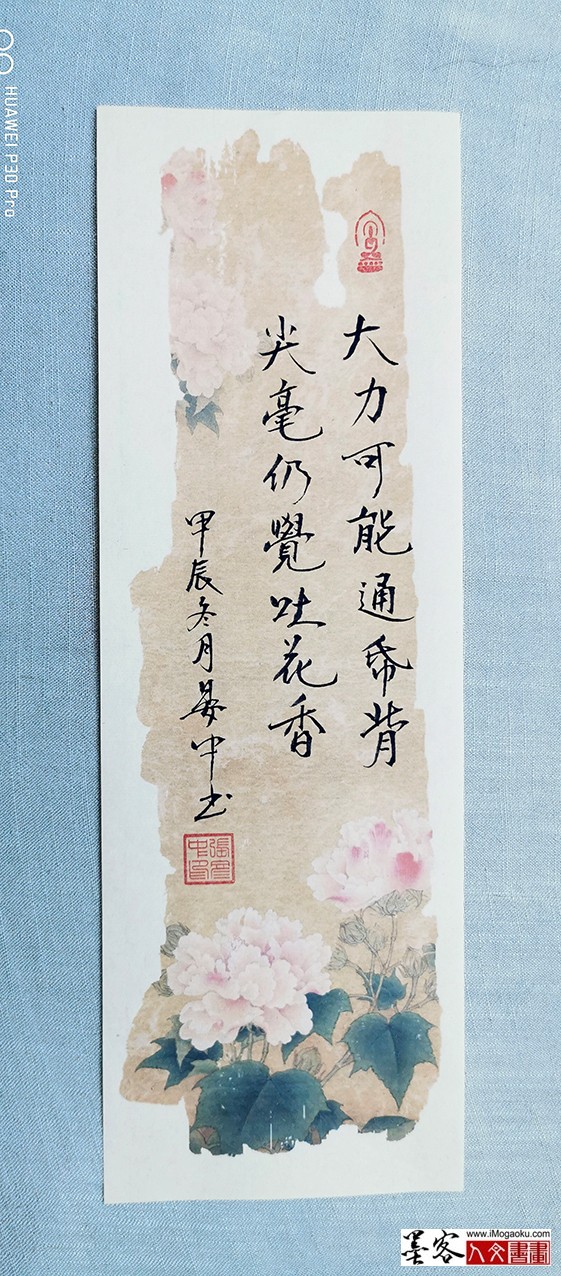 大力可能通帋背
尖毫仍覺吐花香
甲辰冬月晏中书
張晏中印
HUAWEI P30 Pro
墨客
www.iMogaoku.com
人文書畫